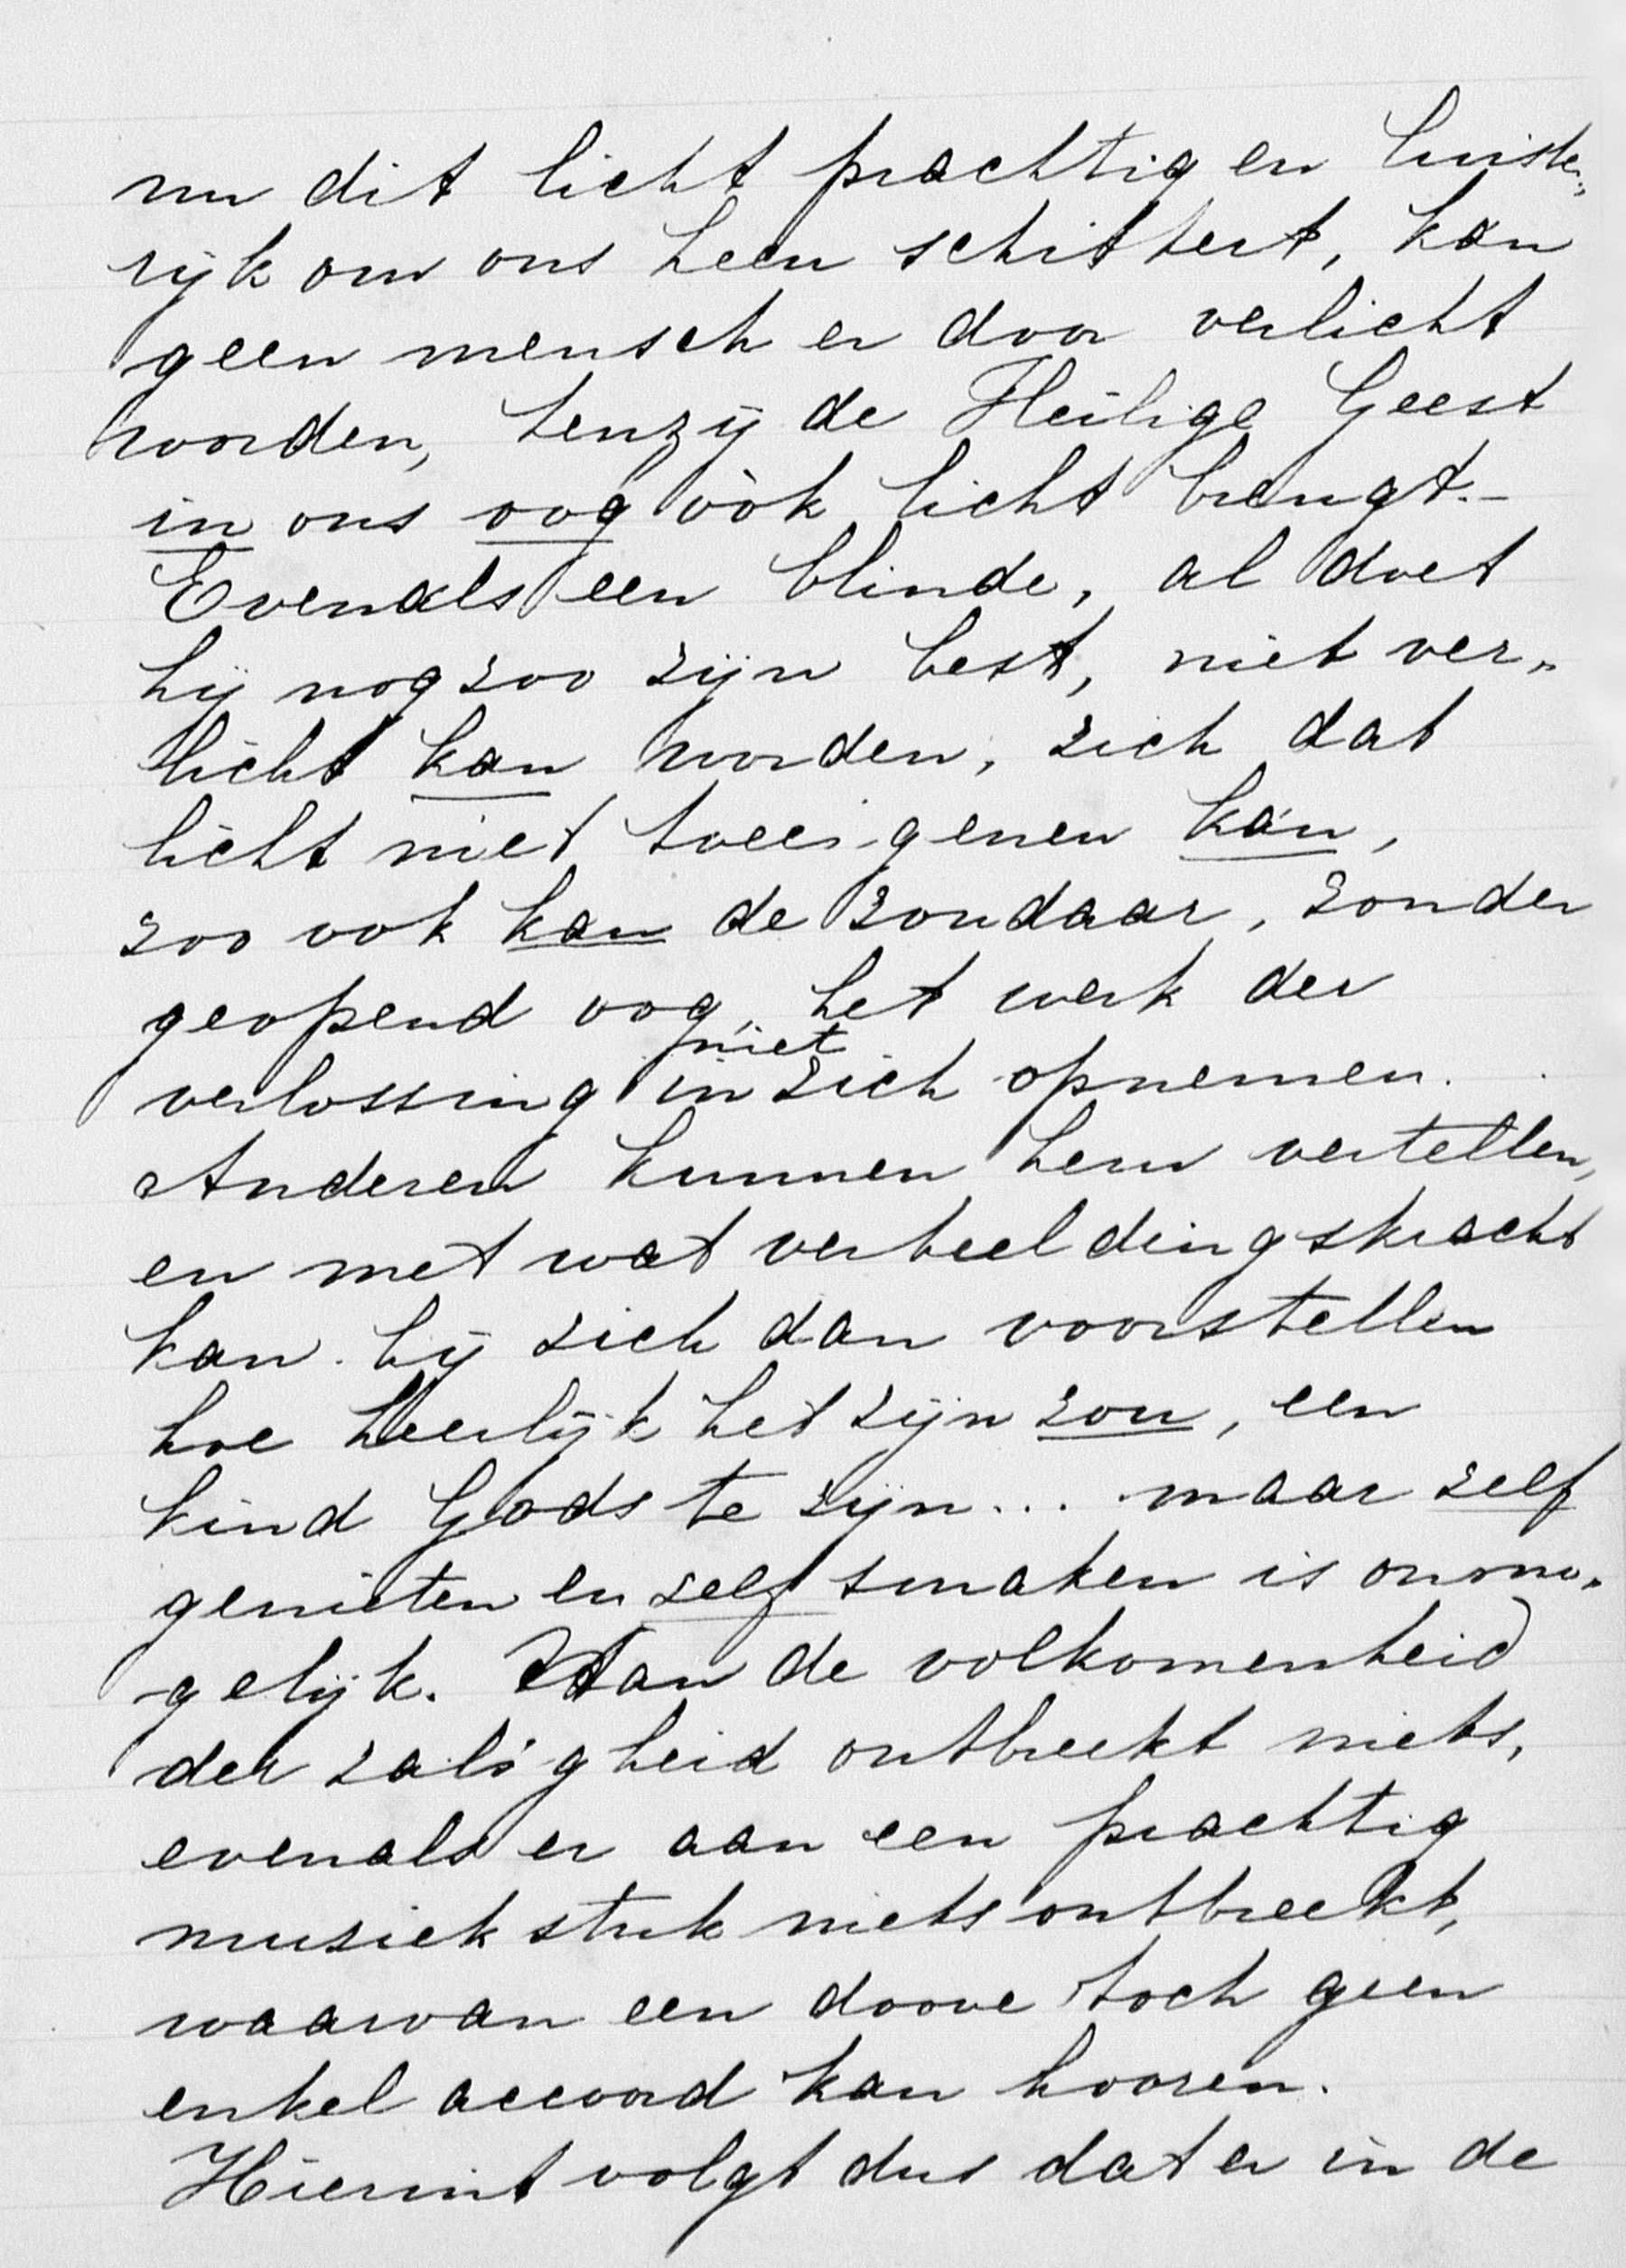 nu dit licht prachtig en luister„
rijk om ons heen schittert, kan
geen mensch er door verlicht
worden, tenzij de Heilige Geest
in ons oog òòk licht brengt.–
Evenals een blinde, al doet
hij nog zoo zijn best, niet ver„
licht kan worden, zich dat
licht niet toeeigenen kán,
zoo ook kan de zondaar, zonder
geopend oog, het werk der
niet
verlossing in zich opnemen.
Anderen kunnen hem vertellen,
en met wat verbeeldingskracht
kan hij zich dan voorstellen
hoe heerlijk het zijn zou, een
kind Gods te zijn... maar zelf
genieten en zelf smaken is onmo„
gelijk. Aan de volkomenheid
der zaligheid ontbreekt niets,
evenals er aan een prachtig
muziekstuk niets ontbreekt,
waarvan een doove toch geen
enkel accoord kan hooren.
Hieruit volgt dus dat er in de